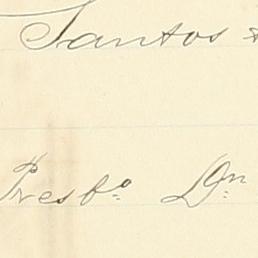 Santos
Presbº Dn